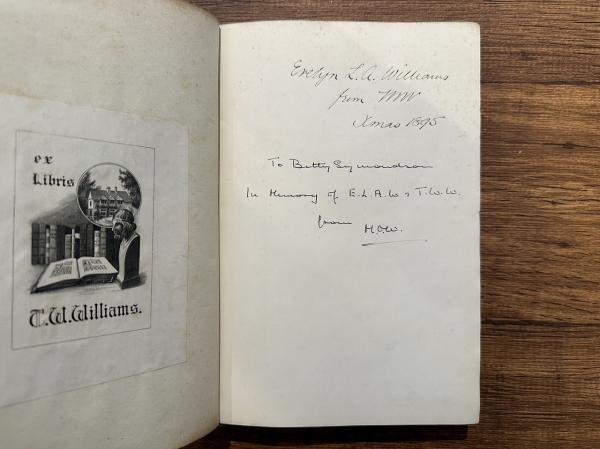 ex
Libris
T.W.Williams.
Evelyn L. A. Williams
from
Xmas 1895
To Betty Symondson
In Memory of E.L.A.W & T.W.W.
from H.O.W.